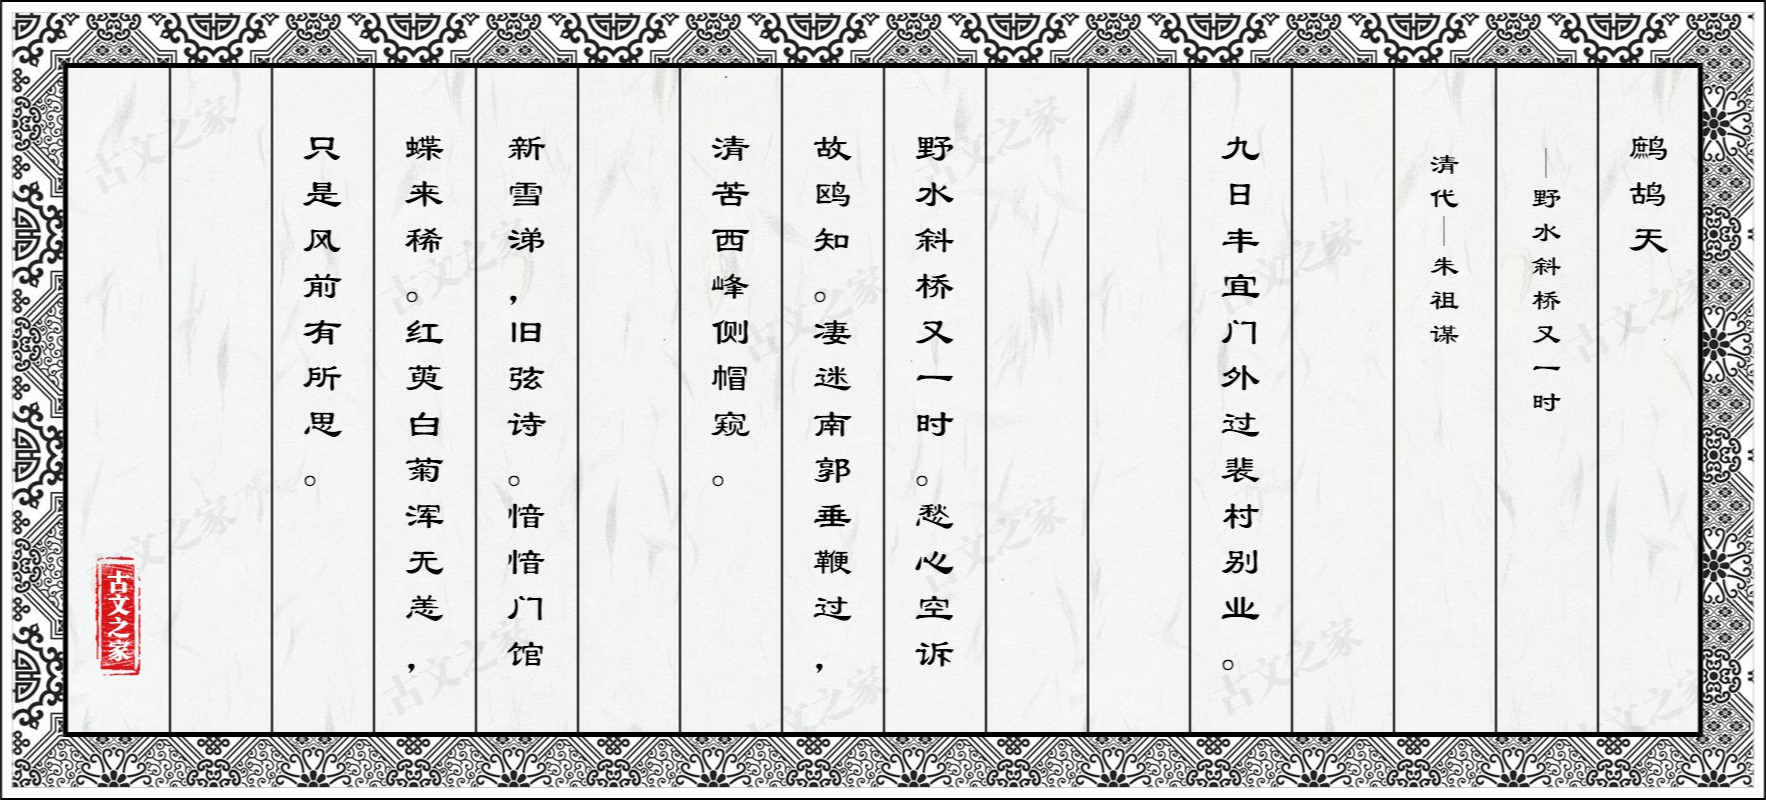 鹧鸪天
—野水斜桥又一时
清代—朱祖谋
九日丰宜门外过裴村别业。
野水斜桥又一时。愁心空诉
故鸥知。凄迷南郭垂鞭过，
清苦西峰侧帽窥。
新雪涕，旧弦诗。愔愔门馆
蝶来稀。红萸白菊浑无恙，
只是风前有所思。
古文之家